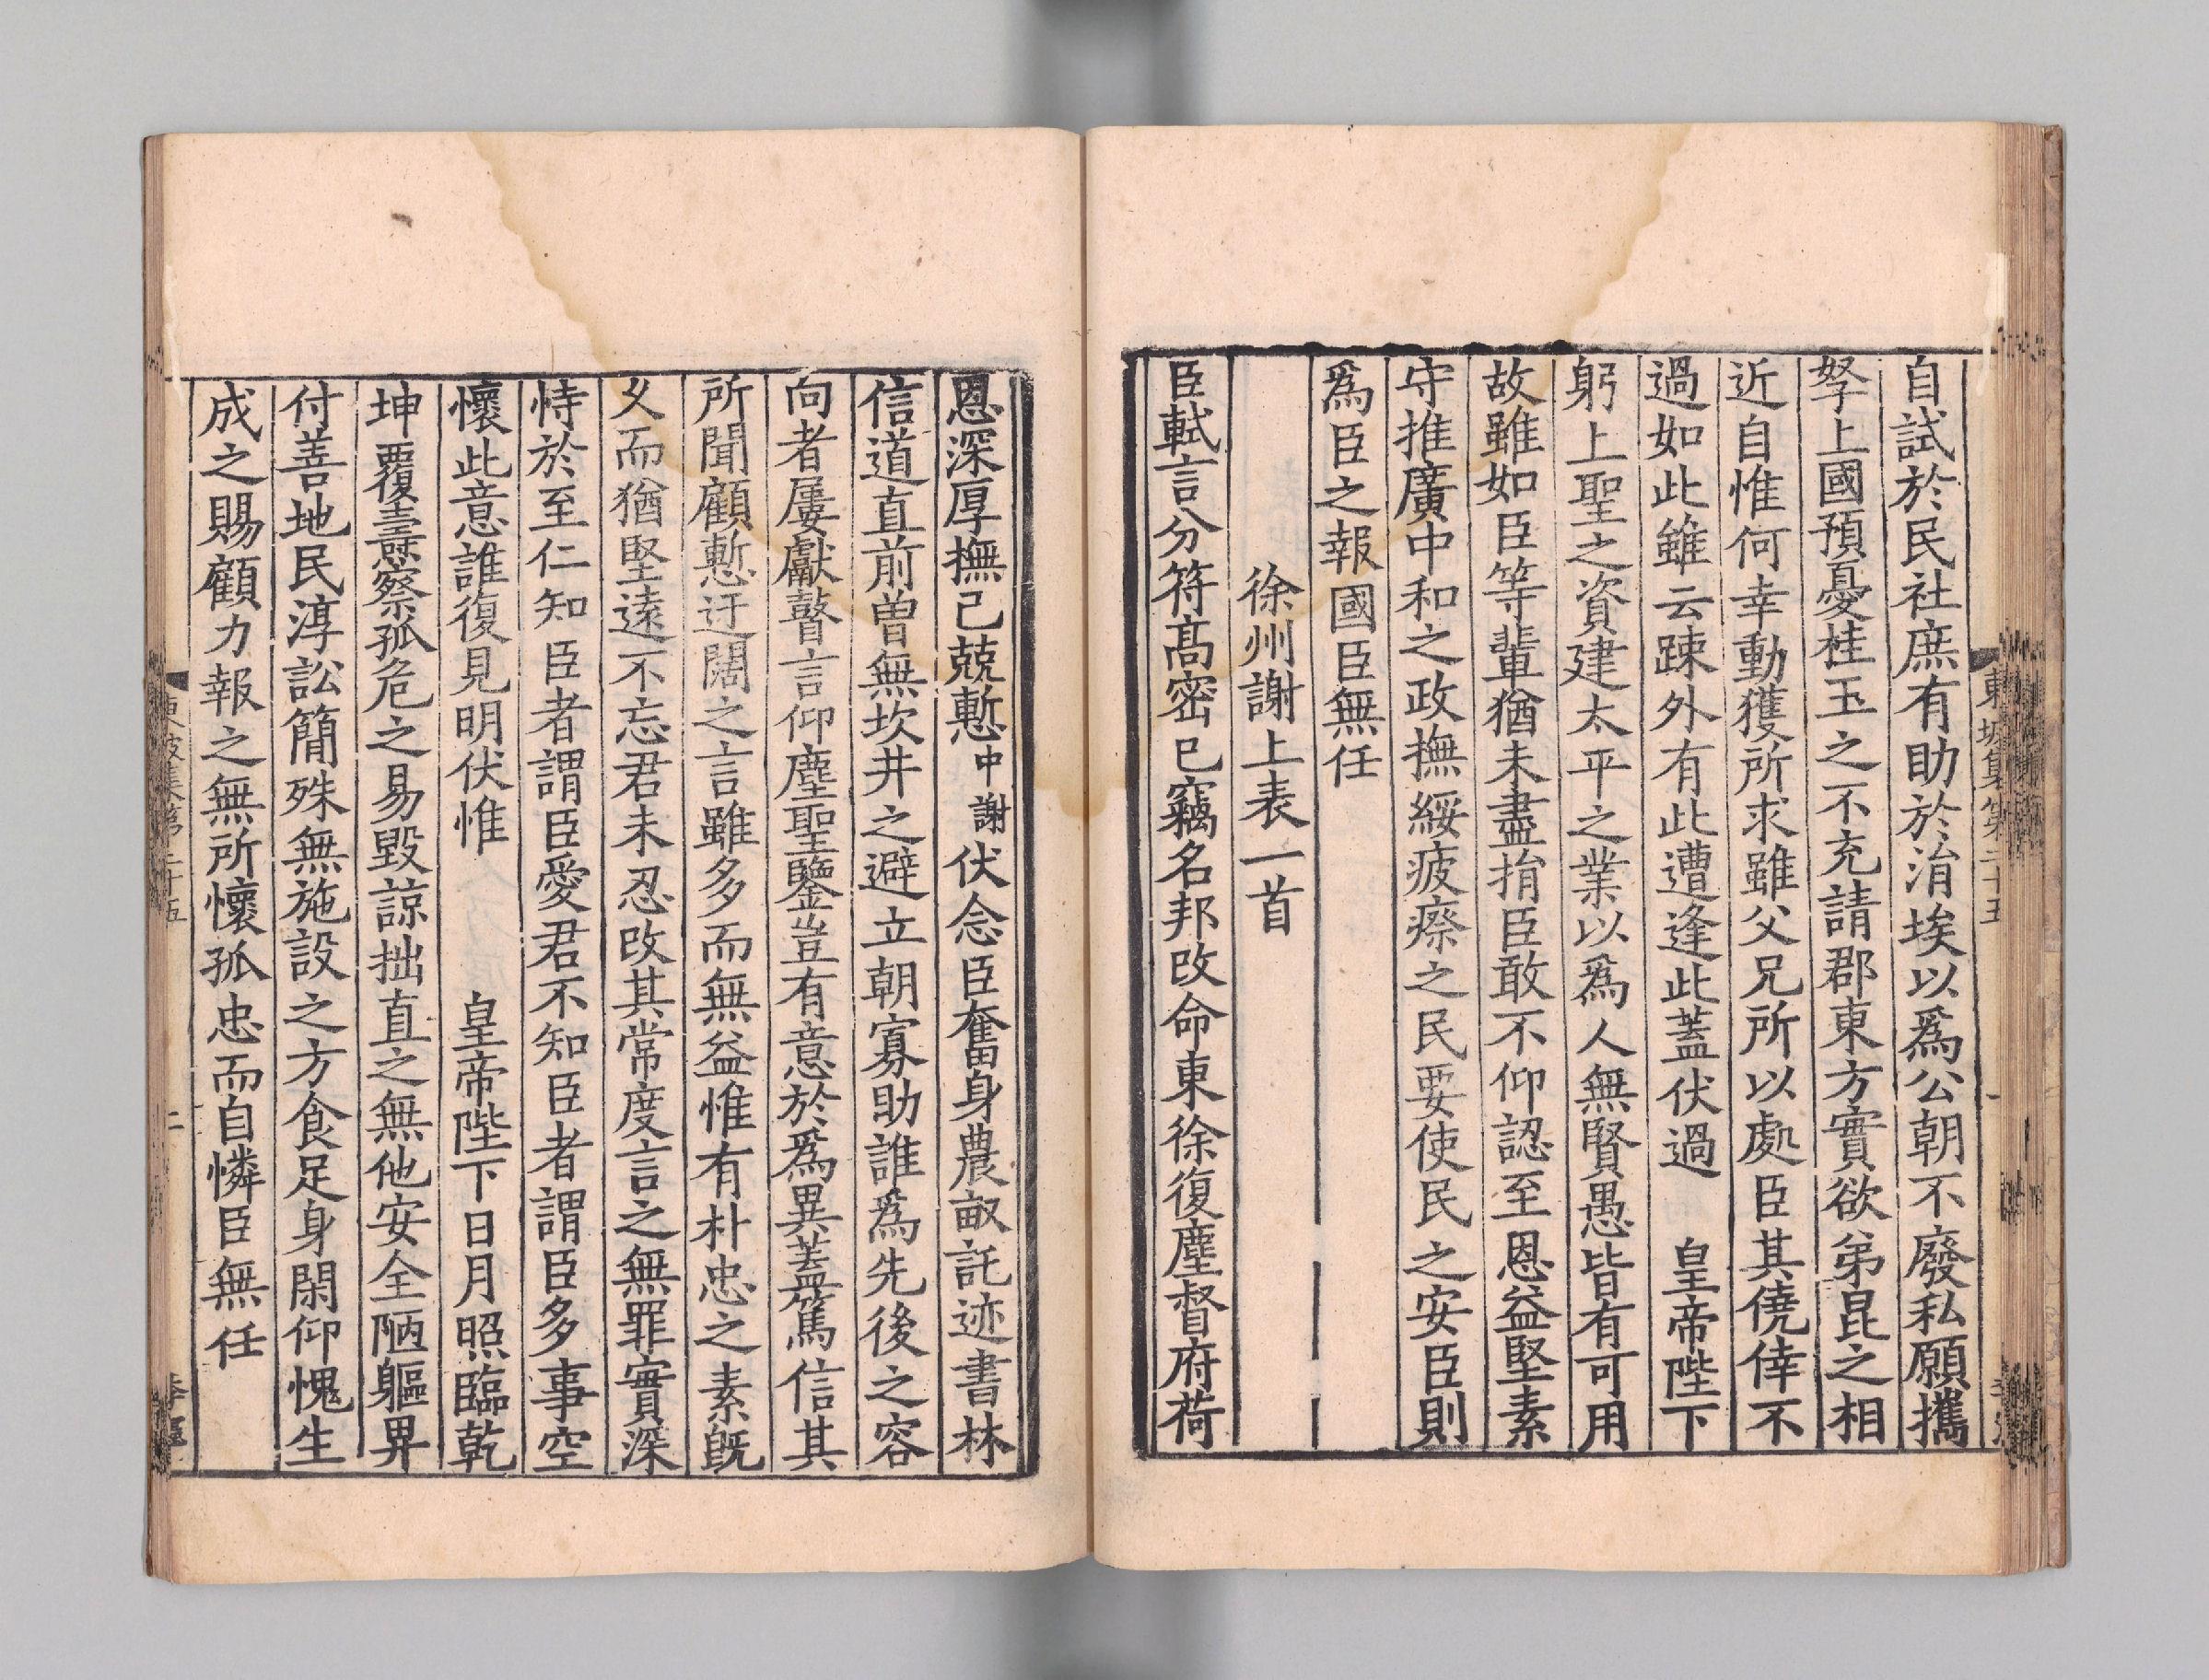 自試於民社庶有助於涓埃以爲公朝不廢私願攜
孥上國預憂桂玉之不充請郡東方實欲弟昆之相
近自惟何幸動獲所求雖父兄所以處臣其僥倖不
過如此雖云踈外有此遭逢此蓋伏過　皇帝陛下
躬上聖之資建太平之業以爲人無賢愚皆有可用
故雖如臣等輩猶未盡捐臣敢不仰認至恩益堅素
守推廣中和之政撫綏疲瘵之民要使民之安臣則
爲臣之報國臣無任
徐州謝上表一首
臣軾言分符髙密已竊名邦改命東徐復塵督府荷
恩深厚撫己兢慙中謝伏念臣奮身農畝託迹書林
信道直前曽無坎井之避立朝寡助誰爲先後之容
向者屢獻瞽言仰塵聖鑒豈有意於爲異蓋篤信其
所聞顧慙迂闊之言雖多而無益惟有朴忠之素旣
久而猶堅遠不忘君未忍改其常度言之無罪實深
恃於至仁知臣者謂臣愛君不知臣者謂臣多事空
懷此意誰復見明伏惟　皇帝陛下日月照臨乾
坤覆燾察孤危之易毀諒拙直之無他安全陋軀畀
付善地民淳訟簡殊無施設之方食足身閑仰愧生
成之賜顧力報之無所懷孤忠而自憐臣無任
東坡集第二十五
二